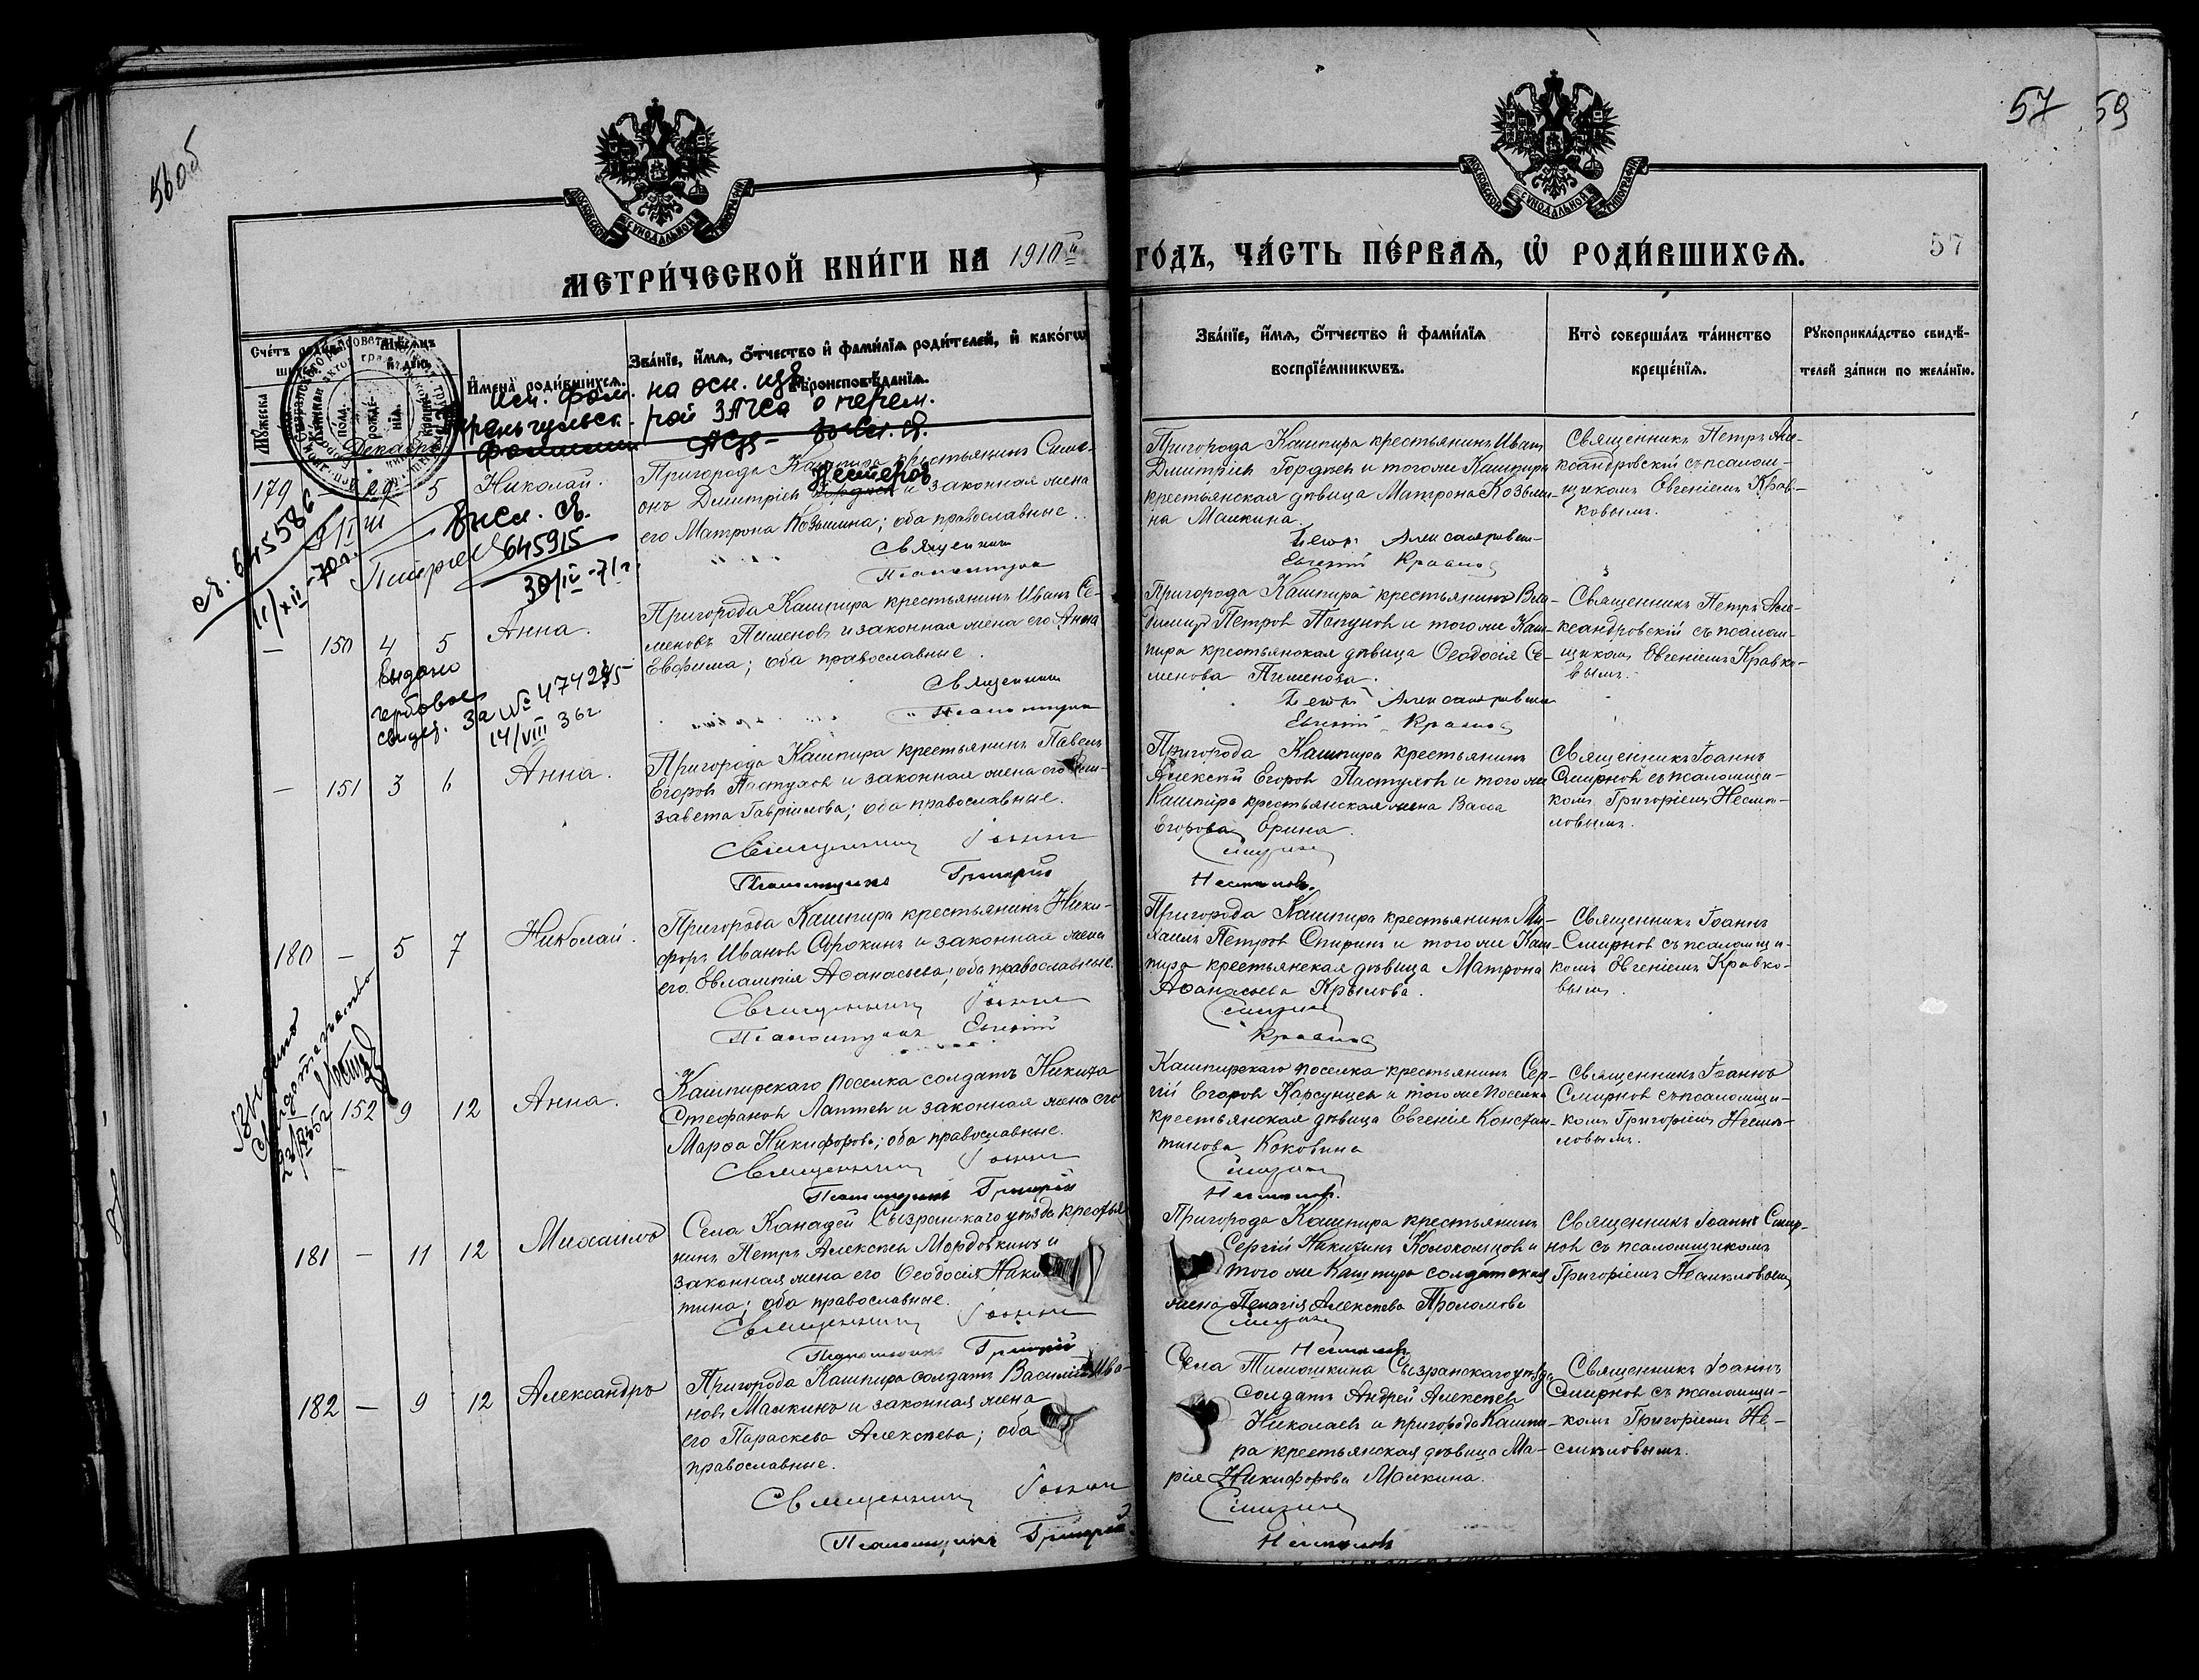 56об
57
59
МОСКОВСКОЙ СѴНОДАЛЬНОЙ ТИПОГРАФІИ
МОСКОВСКОЙ СѴНОДАЛЬНОЙ ТИПОГРАФІИ
МЕТРИ́ЧЕСКОЙ КНИ́ГИ НА 1910й ГО́ДЪ, ЧА́СТЬ ПЕ́РВАѦ, Ѿ РОДИ́ВШИХСѦ.
57
Счéтъ роди́в
шихсѧ.
Мѣ́сѧцъ
и҆ де́нь
Мꙋ́жеска
по́ла
рожде́
нїѧ
креще́
И҆мена̀ роди́вшихсѧ.
Зва́нїе, и҆́мѧ, ѻ҆́тчество и҆ фами́лїѧ роди́телей, и҆ како́гѡ
вѣроисповѣ́данїѧ.
Зва́нїе, и҆́мѧ, ѻ҆́тчество и҆ фами́лїѧ
воспрїе́мникѡвъ.
Кто̀ соверша́лъ та́инство
креще́нїѧ.
Рꙋкоприкла́дство свидѣ́-
телей за́писи по жела́нїю.
Исп. фам. на осн. изв.
рой ЗАГСа о перем.
Декабрь
179 – 29 5 Николай.
Пригорода Кашпира крестьянинъ Симе-
онъ Дмитріевъ Нестеров и законная жена
его Матрона Козьмина; оба православные.
Священникъ
Псаломщикъ
Пригорода Кашпира крестьянинъ Иванъ
Дмитріевъ Гордѣевъ и того же Кашпира
крестьянская дѣвица Матрона Козьми-
на Малкина.
Петръ Александровскій
Евгеній Кравковъ
Священникъ Петръ Але-
ксандровскій съ псалом-
щикомъ Евгеніемъ Крав-
ковымъ.
св. 645586
11/XII-70г.
Повторно
645915
30/IV-71г.
– 150 4 5 Анна.
Пригорода Кашпира крестьянинъ Иванъ Се-
меновъ Пименовъ и законная жена его Анна
Евфимова; оба православные.
Священникъ
Псаломщикъ
Пригорода Кашпира крестьянинъ Вла-
димиръ Петровъ Папуновъ и того же Каш-
пира крестьянская дѣвица Ѳеодосія Се-
менова Пименова.
Петръ Александровскій
Евгеній Кравковъ
Священникъ Петръ Але-
ксандровскій съ псалом-
щикомъ Евгеніемъ Кравко-
вымъ.
Выдано
гербовое
свидет. за № 474245
14/VIII 36г
– 151 3 6 Анна.
Пригорода Кашпира крестьянинъ Павелъ
Егоровъ Пастуховъ и законная жена его Ели-
завета Гавріилова; оба православные.
Священникъ Іоаннъ
Псаломщикъ Григорій
Пригорода Кашпира крестьянинъ
Алексѣй Егоровъ Пастуховъ и того же
Кашпира крестьянская жена Васса
Егорова Ерина.
Смирновъ
Несмѣловъ.
Священникъ Іоаннъ
Смирновъ съ псаломщи-
комъ Григоріемъ Несмѣ-
ловымъ.
180 – 5 7 Николай.
Пригорода Кашпира крестьянинъ Ники-
форъ Ивановъ Сорокинъ и законная жена
его Евлампія Аѳанасьева; оба православные.
Священникъ Іоаннъ
Псаломщикъ Евгеній
Пригорода Кашпира крестьянинъ Ми-
хаилъ Петровъ Спиринъ и того же Каш-
пира крестьянская дѣвица Матрона
Аѳанасьева Крылова.
Смирновъ
Кравковъ
Священникъ Іоаннъ
Смирновъ съ псаломщи-
комъ Евгеніемъ Кравко-
вымъ.
152 9 12 Анна.
Кашпирскаго поселка солдатъ Никита
Стефановъ Лаптевъ и законная жена его
Марѳа Никифорова; оба православные.
Священникъ Іоаннъ
Псаломщикъ Григорій
Кашпирскаго поселка крестьянинъ Сер-
гій Егоровъ Карсунцевъ и того же поселка
крестьянская дѣвица Евгенія Констан-
тинова Коковина
Смирновъ
Несмѣловъ.
Священникъ Іоаннъ
Смирновъ съ псаломщи-
комъ Григоріемъ Несмѣ-
ловымъ.
181 – 11 12 Михаилъ
Села Канадей Сызранскаго уѣзда крестья
нинъ Петръ Алексѣевъ Мордовкинъ и
законная жена его Ѳеодосія Ники-
тина; оба православные.
Священникъ Іоаннъ
Псаломщикъ Григорій
Пригорода Кашпира крестьянинъ
Сергій Никитинъ Колокольцовъ и
того же Кашпира солдатская
жена Пелагія Алексѣева Проломова
Смирновъ
Несмѣловъ
Священникъ Іоаннъ Смир-
новъ съ псаломщикомъ
Григоріемъ Несмѣловымъ
182 – 9 12 Александръ
Пригорода Кашпира солдатъ Василій Ива-
новъ Малкинъ и законная жена
его Параскева Алексѣева; оба
православные.
Священникъ Іоаннъ
Псаломщикъ Григорій
Села Тимошкина Сызранскаго уѣзда
солдатъ Андрей Алексѣевъ
Николаевъ и пригорода Кашпи-
ра крестьянская дѣвица Ма-
рія Никифорова Малкина.
Смирновъ
Несмѣловъ
Священникъ Іоаннъ
Смирновъ съ псаломщи-
комъ Григоріемъ Не-
смѣловымъ.